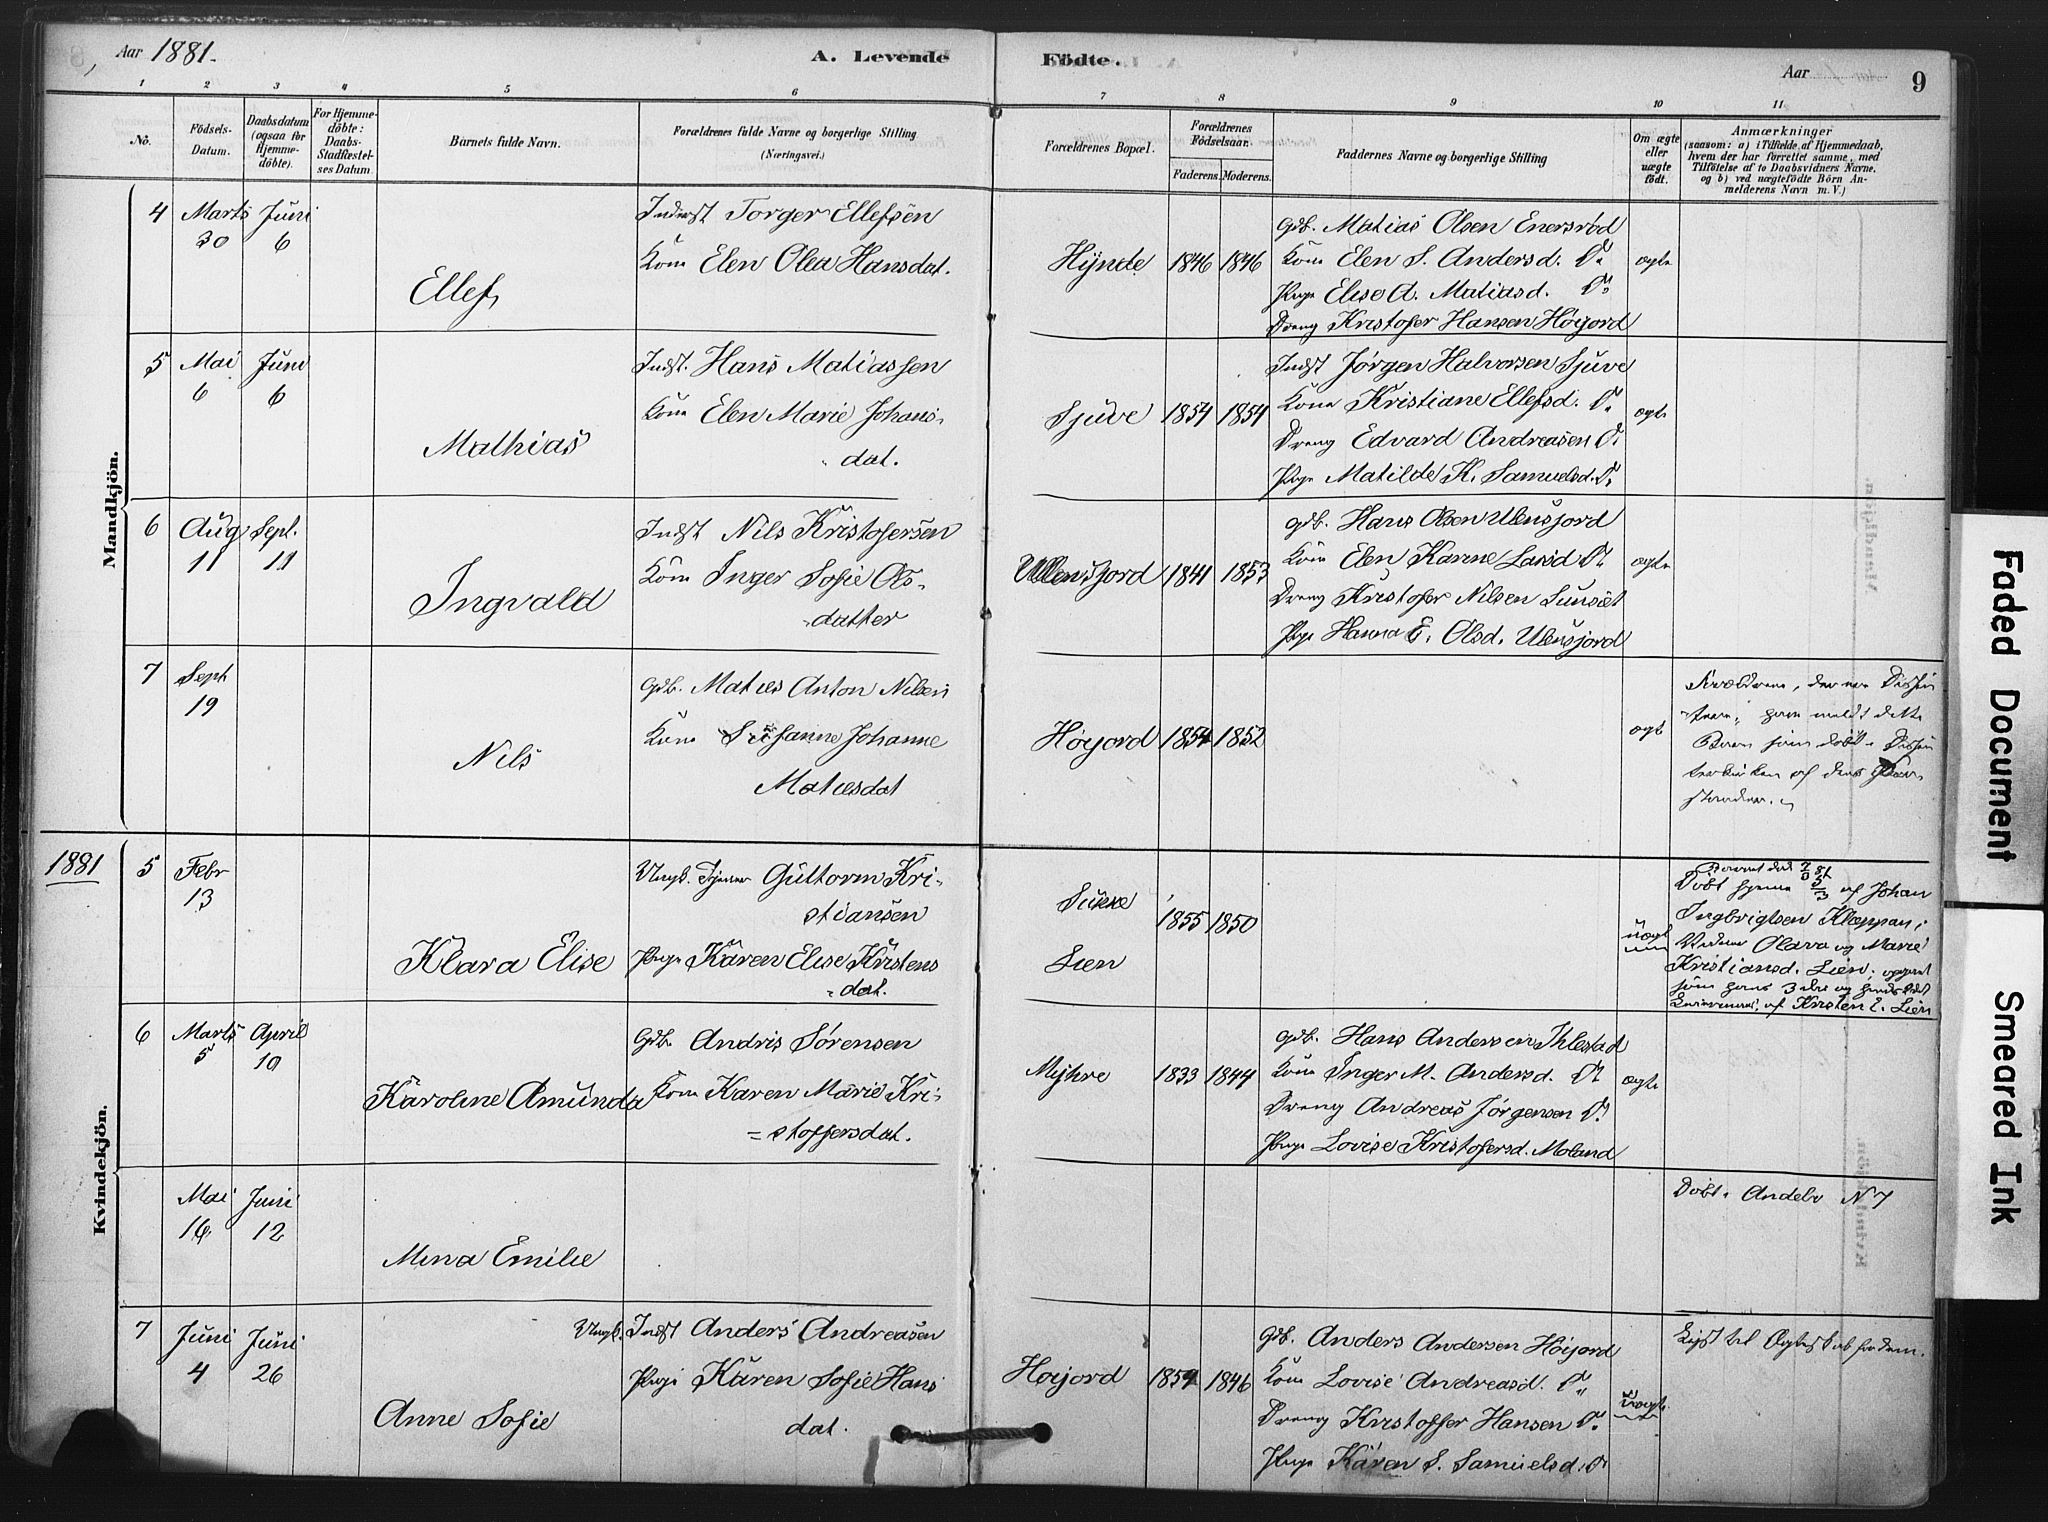 Aar 1881.
A. Levende
Födte.
Aar
9
1
2
3
4
5
6
7
8
9
10
11
No.
Födsels-
Datum.
Daabsdatum
(ogsaa for
Hjemme-
döbte).
For Hjemme-
döbte:
Daabs-
Stadfæstel-
ses Datum.
Barnets fulde Navn.
Forældrenes fulde Navne og borgerlige Stilling
(Næringsvei.)
Forældrenes Bopæl.
Forældrenes
Födselsaar.
Faderens.
Moderens.
Faddernes Navne og borgerlige Stilling
Om ægte
eller
uægte
födt.
Anmærkninger
(saasom: a) i Tilfælde af Hjemmedaab,
hvem der har forrettet samme, med
Tilföielse af to Daabsvidners Navne,
og b) ved uægtefödte Börn An-
melderens Navn m. V.)
Mandkjön.
4
Marts
30
Juni
6
Ellef
Inderst Torger Ellefsen
Kone Elen Olea Hansdat.
Hynde
1846
1846
Gdb. Matias Olsen Enersrød
Kone Elen S. Andersd. Do
Pige Elise A. Matiasd. Do
Dreng Kristofer Hansen Høijord
ægte
5
Mai
6
Juni
6
Mathias
Indst. Hans Matiassen
Kone Elen Marie Johans-
dat.
Sjuve
1854
1854
Indst Jørgen Halvorsen Sjuve
Kone Kristiane Ellefsd. Do
Dreng Edvard Andreasen Do
Pige Matilde K. Samuelsd. Do
ægte
6
Aug
11
Sept.
11
Ingvald
Indst Nils Kristofersen
Kone Inger Sofie Ols-
datter
Ullensjord
1841
1853
Gdb. Hans Olsen Ulensjord
Kone Elen Karine Larsd Do
Dreng Kristofer Nilsen Sunset
Pige Hanna E. Olsd. Ulensjord
ægte
7
Sept
19
Nils
Gdb. Maties Anton Nilsen
Kone Susanne Johanne
Matiesdat
Høyjord
1854
1852
ægte
Forældrene, der ere Dissen
tere, have meldt dette
Barn som døbt i Dissen
terkirken af dens For-
stander.
1881
Kvindekjön.
5
Febr
13
Klara Elise
Ungk. Tjener Guttorm Kri-
stiansen
Pige Karen Elise Kristens
dat.
Sukke
Lien
1855
1850
uægte
Døbt hjemme 5/3 af Johan
Ingbrigtsen Kleppan;
Vidner Olava og Marie
Kristiansd. Lien; opgivet
som hans 3die og hendes 1ste
af Kristen E. Lien
6
Marts
5
April
10
Karoline Amunda
Gdb. Andris Sørensen
Kone Karen Marie Kri-
stoffersdat.
Myhre
1833
1844
Gdb. Hans Andersen Ihlestad
Kone Inger M. Andersd. Do
Dreng Andreas Jørgensen Do
Pige Lovise Kristofersd. Moland
ægte
Mai
16
Juni
12
Mina Emilie
Døbt i Andebu N 7
7
Juni
4
Juni
26
Anne Sofie
Ungk. Indst Anders Andreasen
Pige Karen Sofie Hans
dat.
Høijord
1854
1846
Gdb. Anders Andersen Høijord
Kone Lovise Andreasd. Do
Dreng Kristoffer Hansen Do
Pige Karen S. Samuelsd. Do
uægte
Lyst til Ægteskab for dem.
Faded Document
Smeared Ink